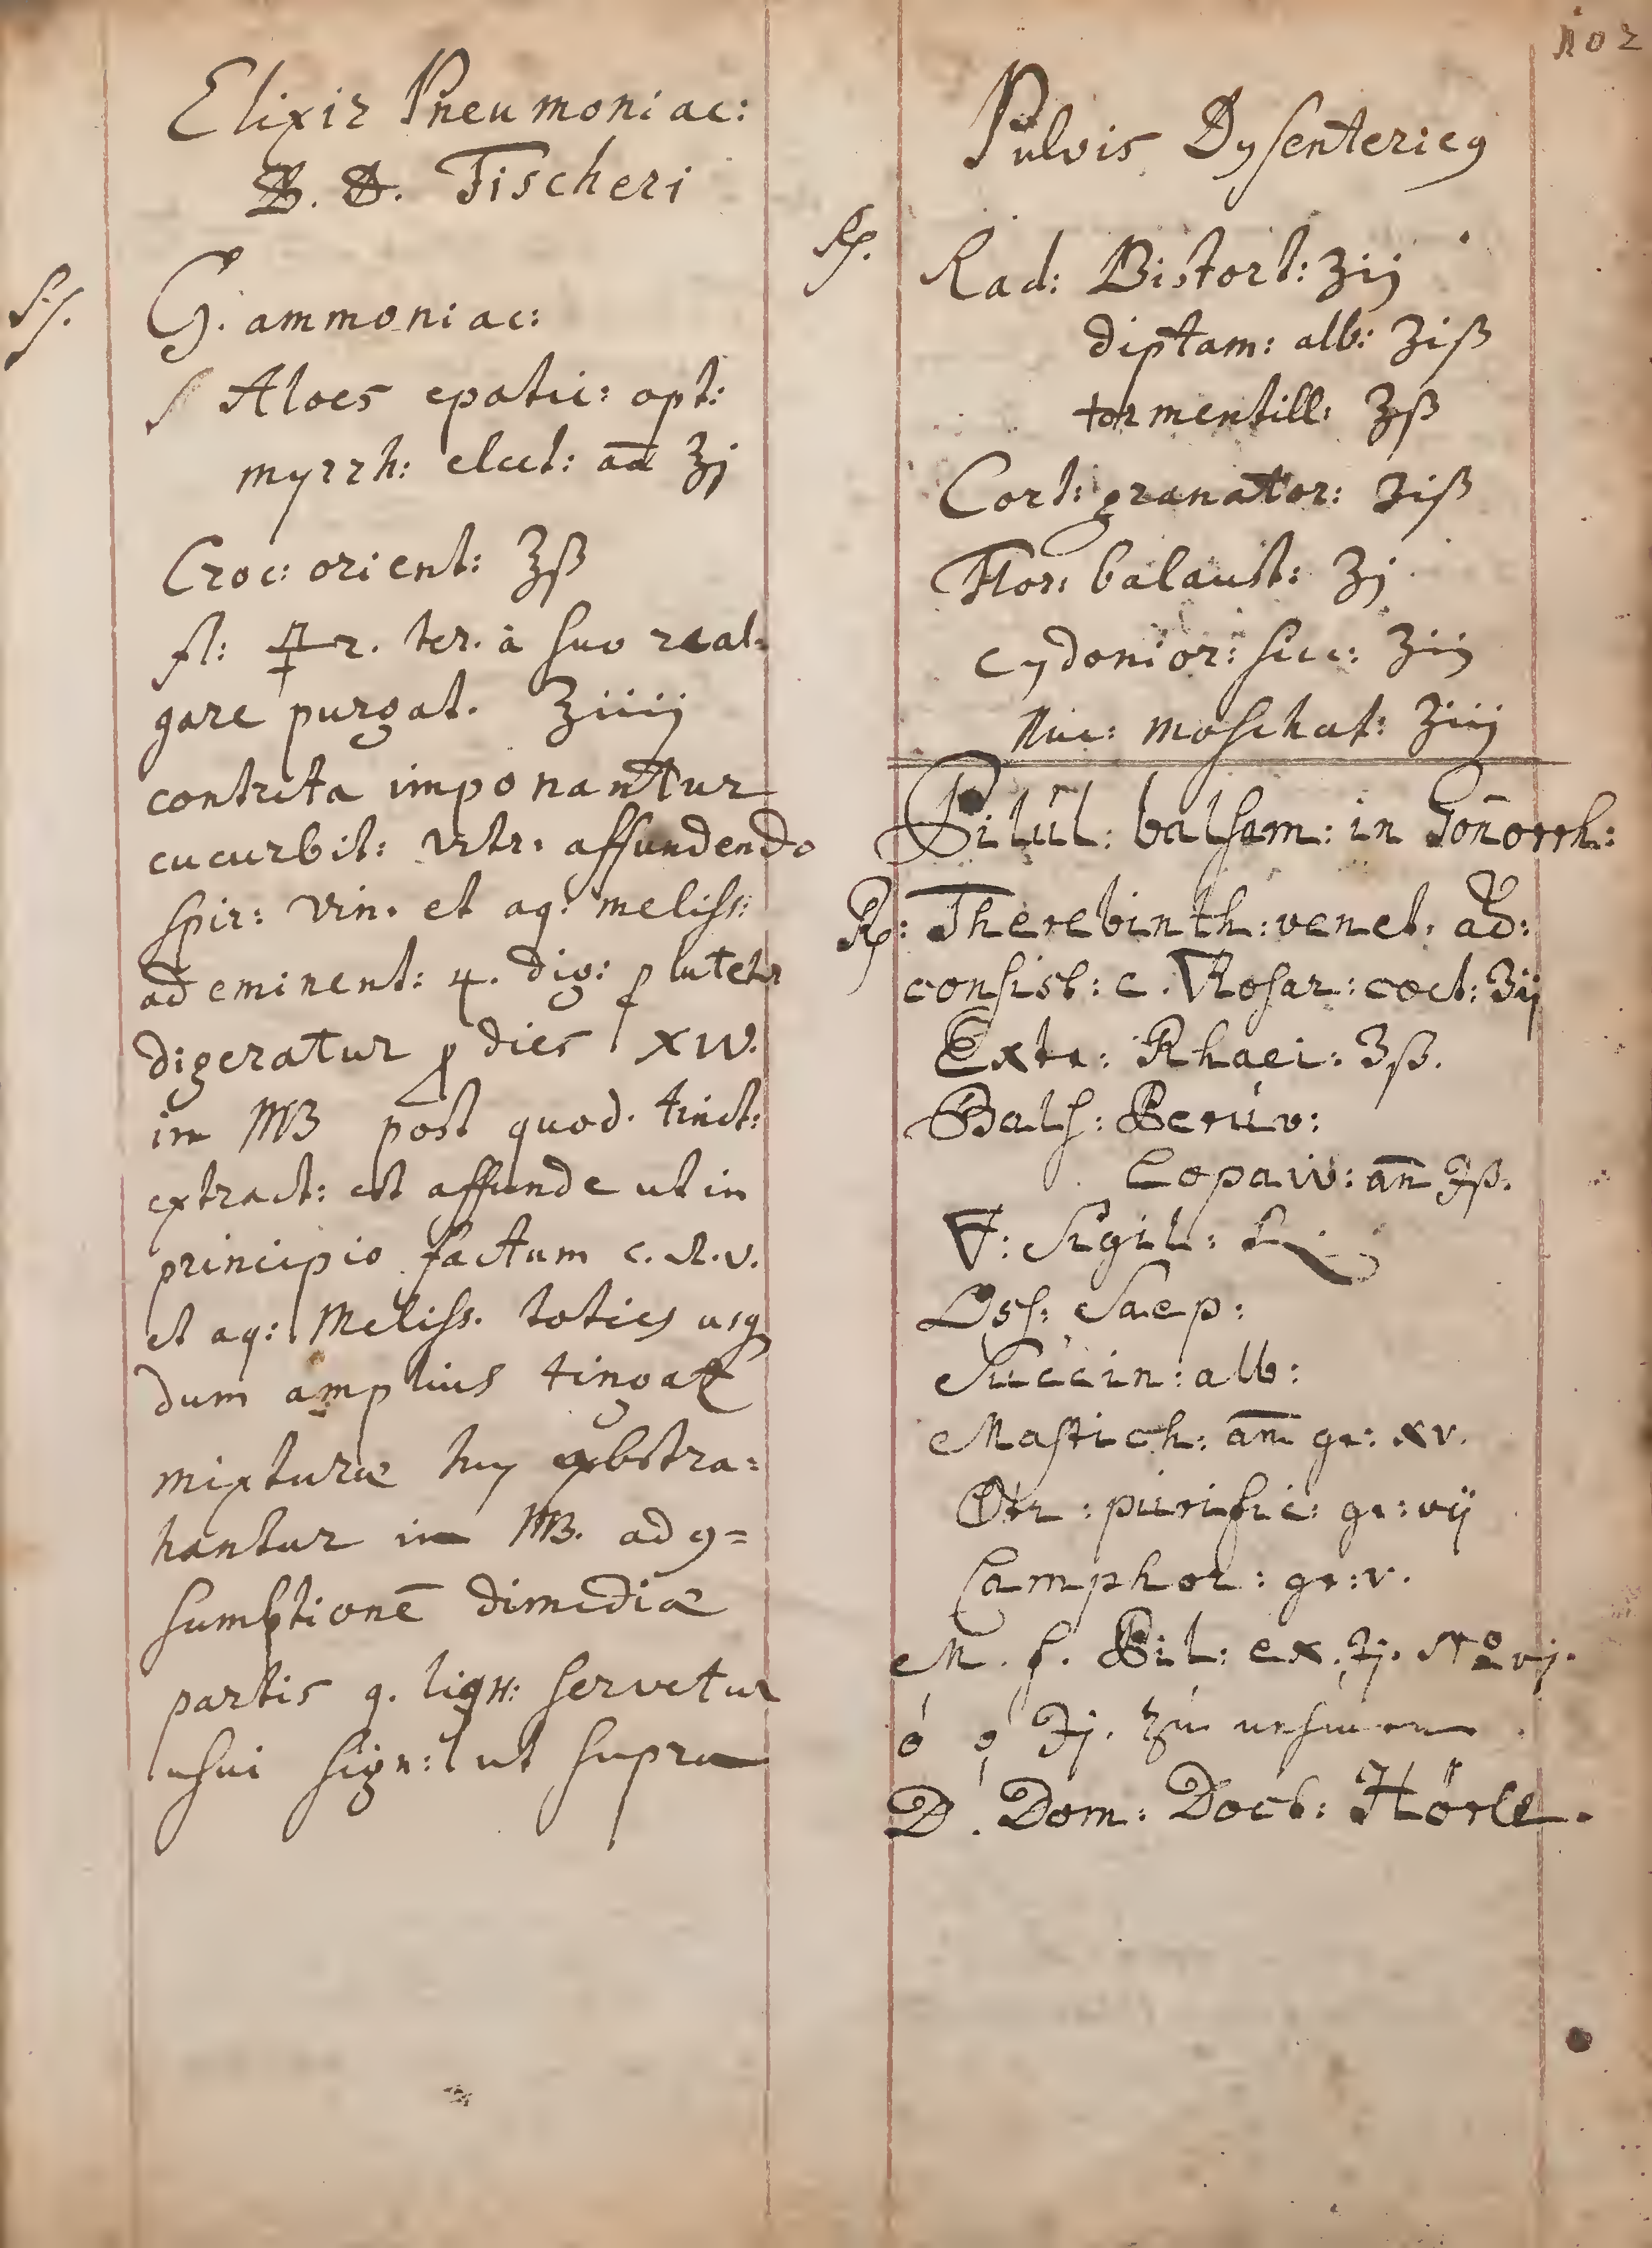 102
Elixir Pneumoniac:
B. D. Fischeri
Rp. G. ammoniac:
Aloes epatic: opt:
myrrh: elect: aa ʒj
Croc: orient: ʒß
fl: 🜍r. ter. à suo real=
gare purgat. ʒiiij
contrita imponantur
cucurbit: vitr. affundendo
spir: vin. et aq: meliss:
ad eminent: 4. dig: lutetr
digeratur p dies xiv.
in MB post quod. tinct:
extract: est affunde ut in
principio factum c. s. v.
et aq: Meliss. toties usq
dum amplius tingat
mixturæ huy abstra=
hantur in MB. ad 9=
sumptionē dimediæ
partis q. liqu: servetur
usui sign: ut supra
Pulvis Dysentericꝰ
Rp. Rad: Bistort: ʒij
diptam: alb: ʒiß
tormentill: ʒß
Cort: granator: ʒiß
Flor: balaust: ʒj
cydonior: sicc: ʒij
Nuc: moschat: ʒiij
Pilul: balsam: in Gon̄orrh:
Rp: Therebinth: venet. ad:
consist: c. ▽ Rosar: coct: ʒij
Extr: Rhaei: ʒß.
Bals: Peruv:
Copaiv: an̄ ℈ß.
🜃: Sigil:
Oss: Saep:
Succin: alb:
Mastich: an̄ gr: xv.
🜕tr: purific: gr: vij
Camphor: gr: v.
M. f. Pil: ex. ℈j. No vj.
℈j. zu
D. Dom: Doct: Hörle.